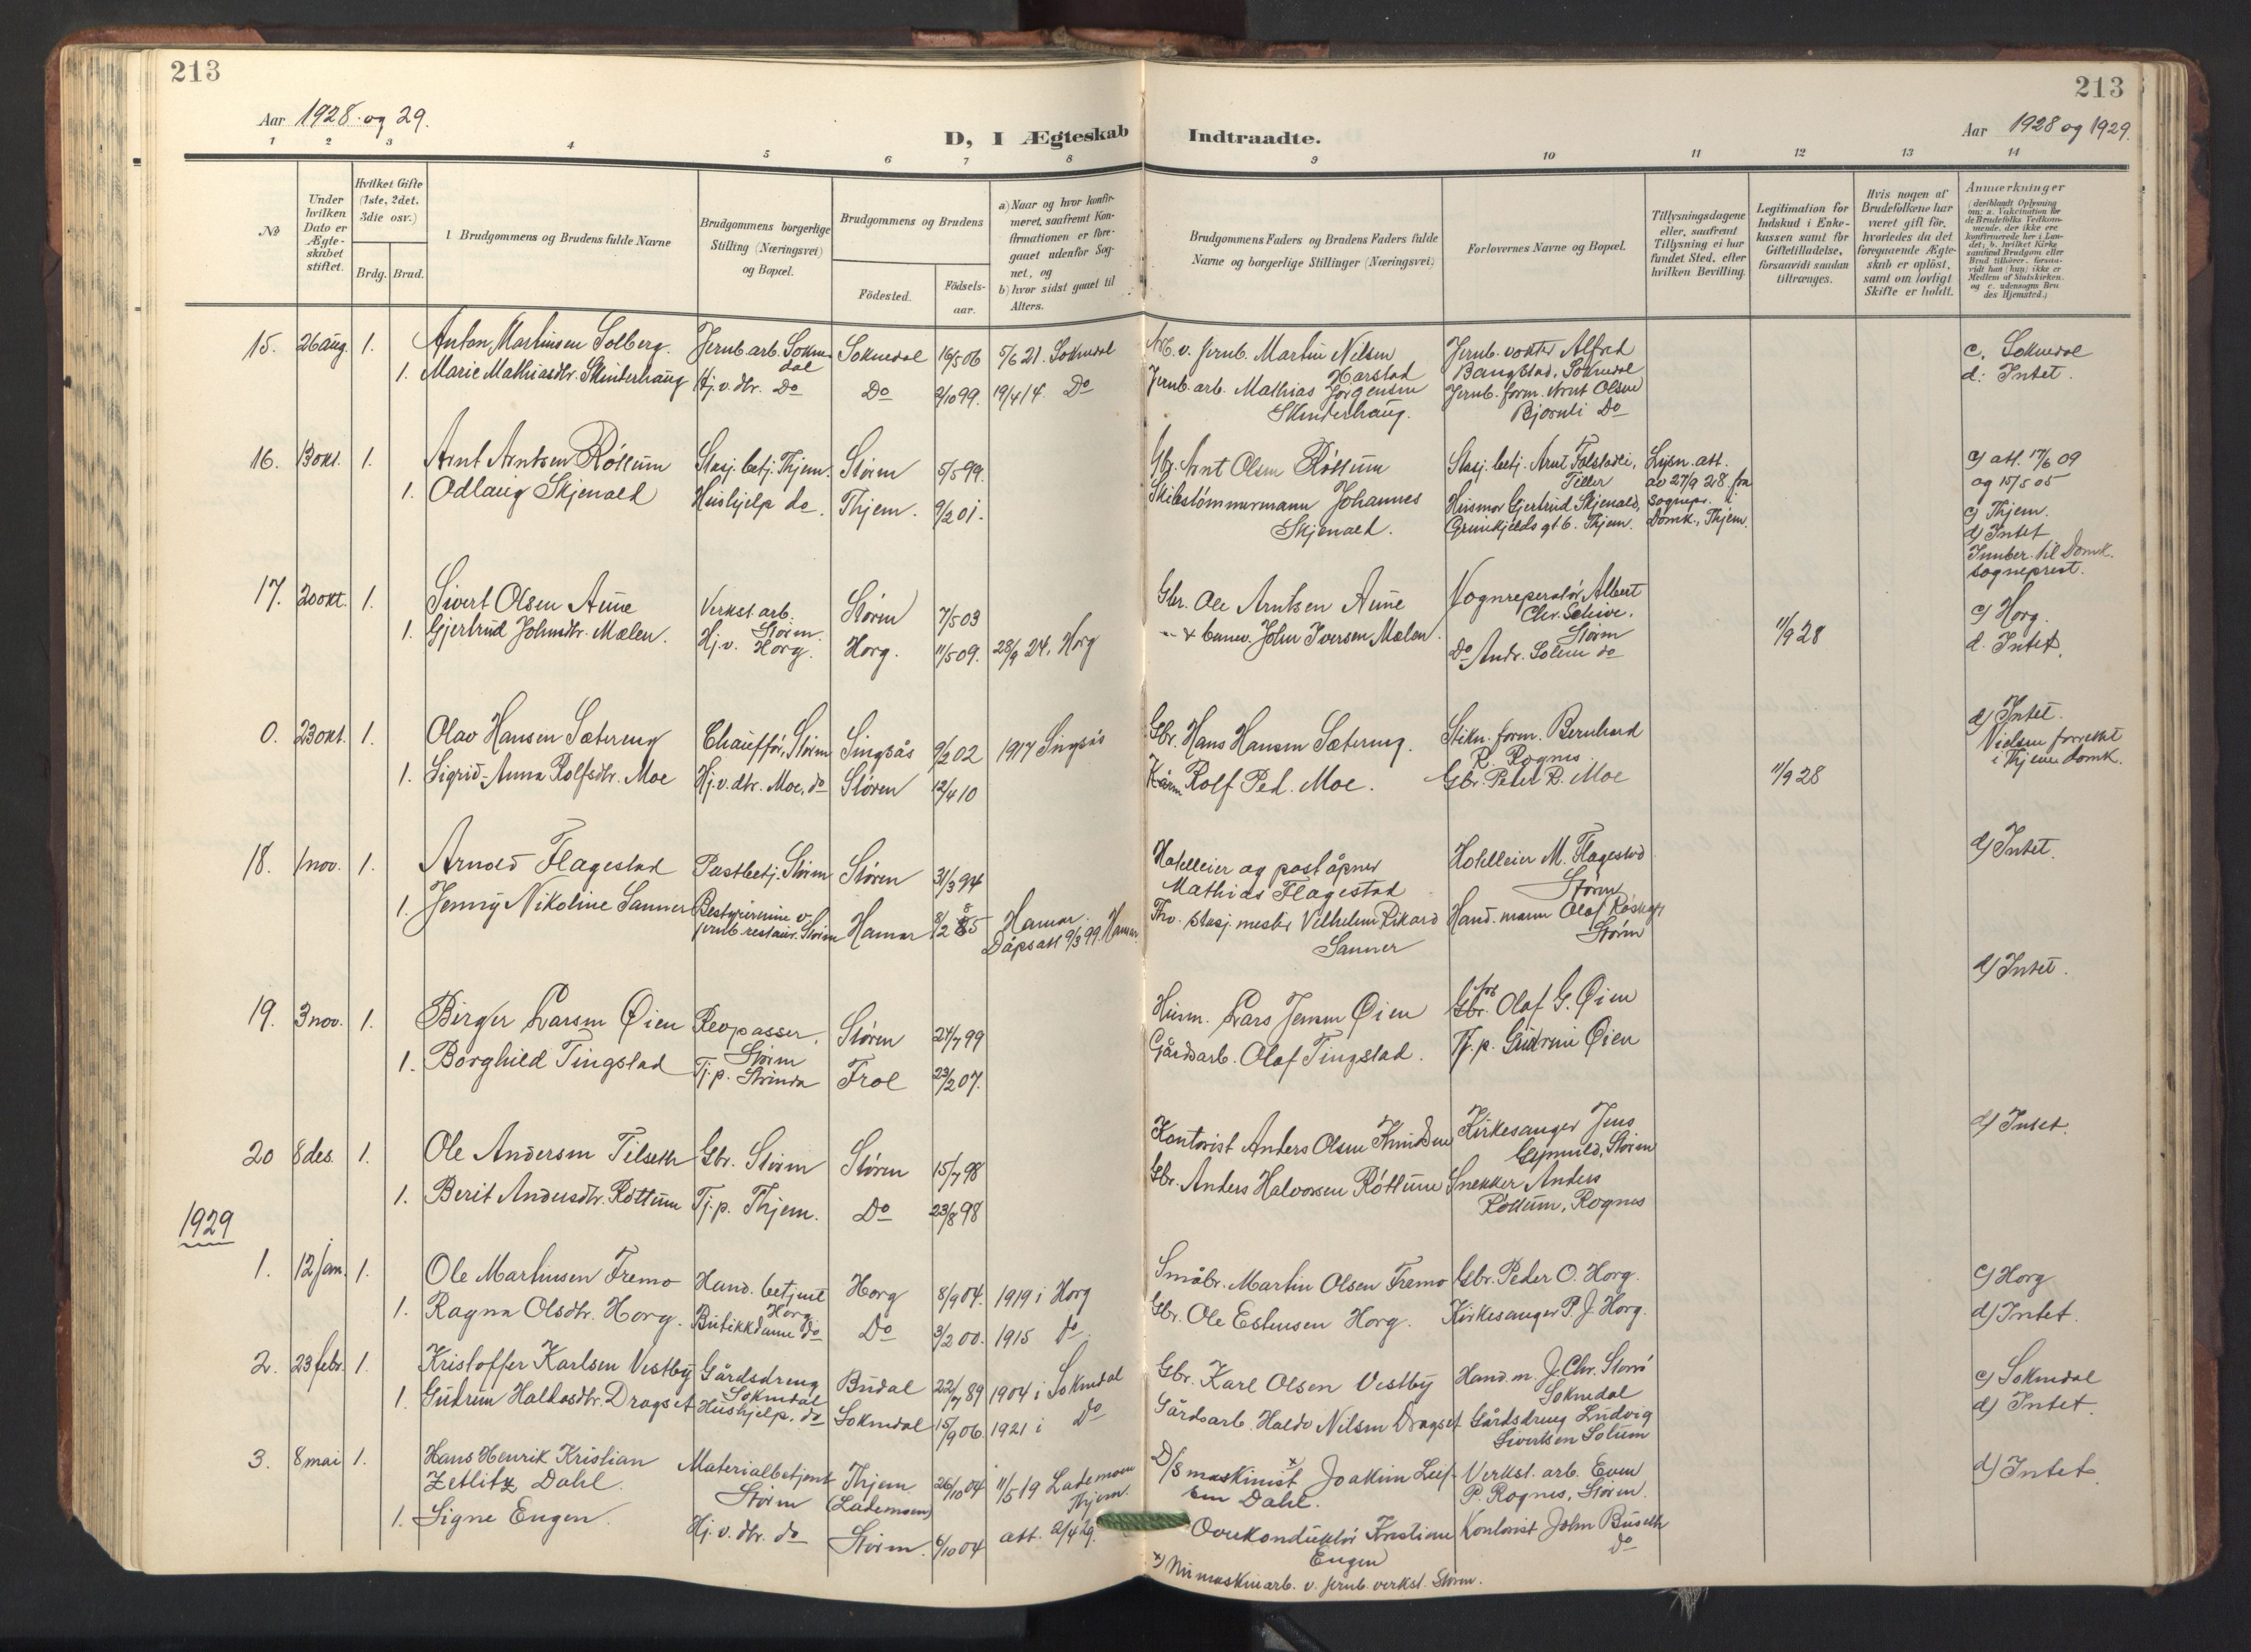 213
213
Aar 1928 og 29.
D, I Ægteskab Indtraadte.
Aar 1928 og 1929.
1 2 3 4 5 6 7 8 9 10 11 12 13 14
No
Under hvilken Dato er Ægteskabet stiftet.
Hvilket Gifte (1ste, 2det, 3die osv.)
Brdg. Brud.
Brudgommens og Brudens fulde Navne
Brudgommens borgerlige Stilling (Næringsvei) og Bopæl.
Brudgommens og Brudens
Födested.
Födselsaar.
a) Naar og hvor konfirmeret, saafremt Konfirmationen er foregaaet udenfor Sognet, og
b) hvor sidst gaaet til Alters.
Brudgommens Faders og Brudens Faders fulde Navne og borgerlige Stillinger (Næringsvei)
Forlovernes Navne og Bopæl.
Tillysningsdagene eller, saafremt Tillysning ei har fundet Sted, efter hvilken Bevilling.
Legitimation for Indskud i Enkekassen samt for Giftetilladelse, forsaavidt saadan tiltrænges.
Hvis nogen af Brudefolkene har været gift før, hvorledes da det foregaaende Ægteskab er oplöst, samt om lovligt Skifte er holdt.
Anmerkninger
15. 26 aug. 1. Anton Martinsen Solberg. Jernb.arb. Soknedal Soknedal 16/5 06 5/6 21. Soknedal
Martin Nilsen Harstad Jernb. vokter Alfred Bangstad, Soknedal
c. Soknedal
d: Intet.
1. Marie Mathiasdtr. Skinderhaug Hj.v. dtr. Do Do 2/10 99. 19/4 14. Do
Jernb. arb. Mathias Jørgensen Skinderhaug. Jernb. form. Arnt Olsen Bjørnli Do
16. 13 okt. 1. Arnt Arntsen Röttum Stasj. betj. Thjem. Stören 5/5 99.
Gbr. Arnt Olsen Röttum Stasj. betj. Arnt Folstadli, Tiller
Lysn. att. av 27/9 28 fra sognepr. i Domk., Thjem.
c) att. 17/6 09
og 15/5 05
1. Odlaug Skjenald Hushjelp do. Thjem. 9/2 01.
Skibstömmermann Johannes Skjenald. Husmor Gjertrud Skjenald, gt 6. Thjem.
c) Thjem.
d) Intet
Innber. til Domk.
sogneprest.
17. 20 okt. 1. Sivert Olsen Aune Verkst. arb. Stören. Stören 7/5 03
Gbr. Ole Arntsen Aune Vognreperatör Albert Chr. Stören
c) Horg.
1. Gjertrud Johnsdtr. Mælen. Hj.v. Horg. Horg. 11/5 09. 28/9 24, Horg
John Iversen Mælen. Do Andr. Solem do
11/9 28
d. Intet.
0. 23 okt. 1. Olav Hansen Sætereng Chaufför, Stören Singsås 9/2 02 1917 Singsås
Gbr. Hans Hansen Sætereng. form. Bernhard R. Rognes
d) Intet.
Vielsen forrettet
i Thjems domk.
1. Sigrid-Anna Rolfsdtr. Moe Hj.v. dtr. Moe, do Stören 12/4 10
Rolf Ped. Moe. Gbr. Peter R. Moe
11/9 28
18. 1 nov. 1. Arnold Flagestad Postbetj. Stören Stören 31/3 94
Hotelleier og poståpner Mathias Flagestad Hotelleier M. Flagestad Stören
d) Intet.
1. Jenny Nikoline Sanner Bestyrerinne v. jernb. restaur. Stören Hamar Hamar. Dåpsatt 9/3 99. Hamar.
Fhv. stasj. mester Vilhelm Rikard Sanner Hand. mann Olaf Stören
19. 3 nov. 1. Birger Larsen Øien Revpasser, Stören Stören 24/7 99
Husm. Lars Jensen Øien Gbr. Olaf G. Øien
d) Intet.
1. Borghild Tingstad Tj.p. Strinda Frol 23/2 07.
Gårdsarb. Olaf Tingstad. Tj.p. Gudrun Øien
20 8 des. 1. Ole Andersen Tilseth Gbr. Stören Stören 15/7 98
Kontorist Anders Olsen Knudsen Kirkesanger Jens Stören
d) Intet.
1. Berit Andersdtr. Röttum Tj.p. Thjem. Do 23/8 98
Gbr. Anders Halvorsen Röttum Snekker Anders Röttum, Rognes
1929
1. 12 jan. 1. Ole Martinsen Fremo Hand. betjent Horg Horg 8/9 04. 1919 i Horg
Småbr. Martin Olsen Fremo Gbr. Peder O. Horg.
c) Horg
1. Ragna Olsdtr. Horg. Butikkdame do Do 3/2 00. 1915 do.
Gbr. Ole Estensen Horg. Kirkesanger P. J. Horg.
d) Intet.
2. 23 febr. 1. Kristoffer Karlsen Vestby Gårdsdreng Soknedal Budal 22/7 89 1904 i Soknedal
Gbr. Karl Olsen Vestby Hand.m. J. Chr. Storrö Soknedal
c) Soknedal
1. Gudrun Haldosdtr. Dragset Hushjelp, do Soknedal 15/9 06. 1921 i Do
Gårdsarb. Haldo Nilsen Dragset Gårdsdreng Ludvig Sivertsen Solum
d) Intet.
3. 8 mai 1. Hans Henrik Kristian Zetlitz Dahl. Materialbetjent Stören Thjem (Lademoen) 26/10 04 11/5 19 Lademoen Thjem
D/S maskinist x) Joakim Leif Em Dahl. Verkst. arb. Even P. Rognes, Stören.
d) Intet.
1. Signe Engen. Hj.v. dtr. do Stören. 6/10 04 att. 2/4 29.
Overkonduktör Kristian Engen Kontorist John Buseth Do
x) Nu maskinarb. v. jernb. verkst. Stören.